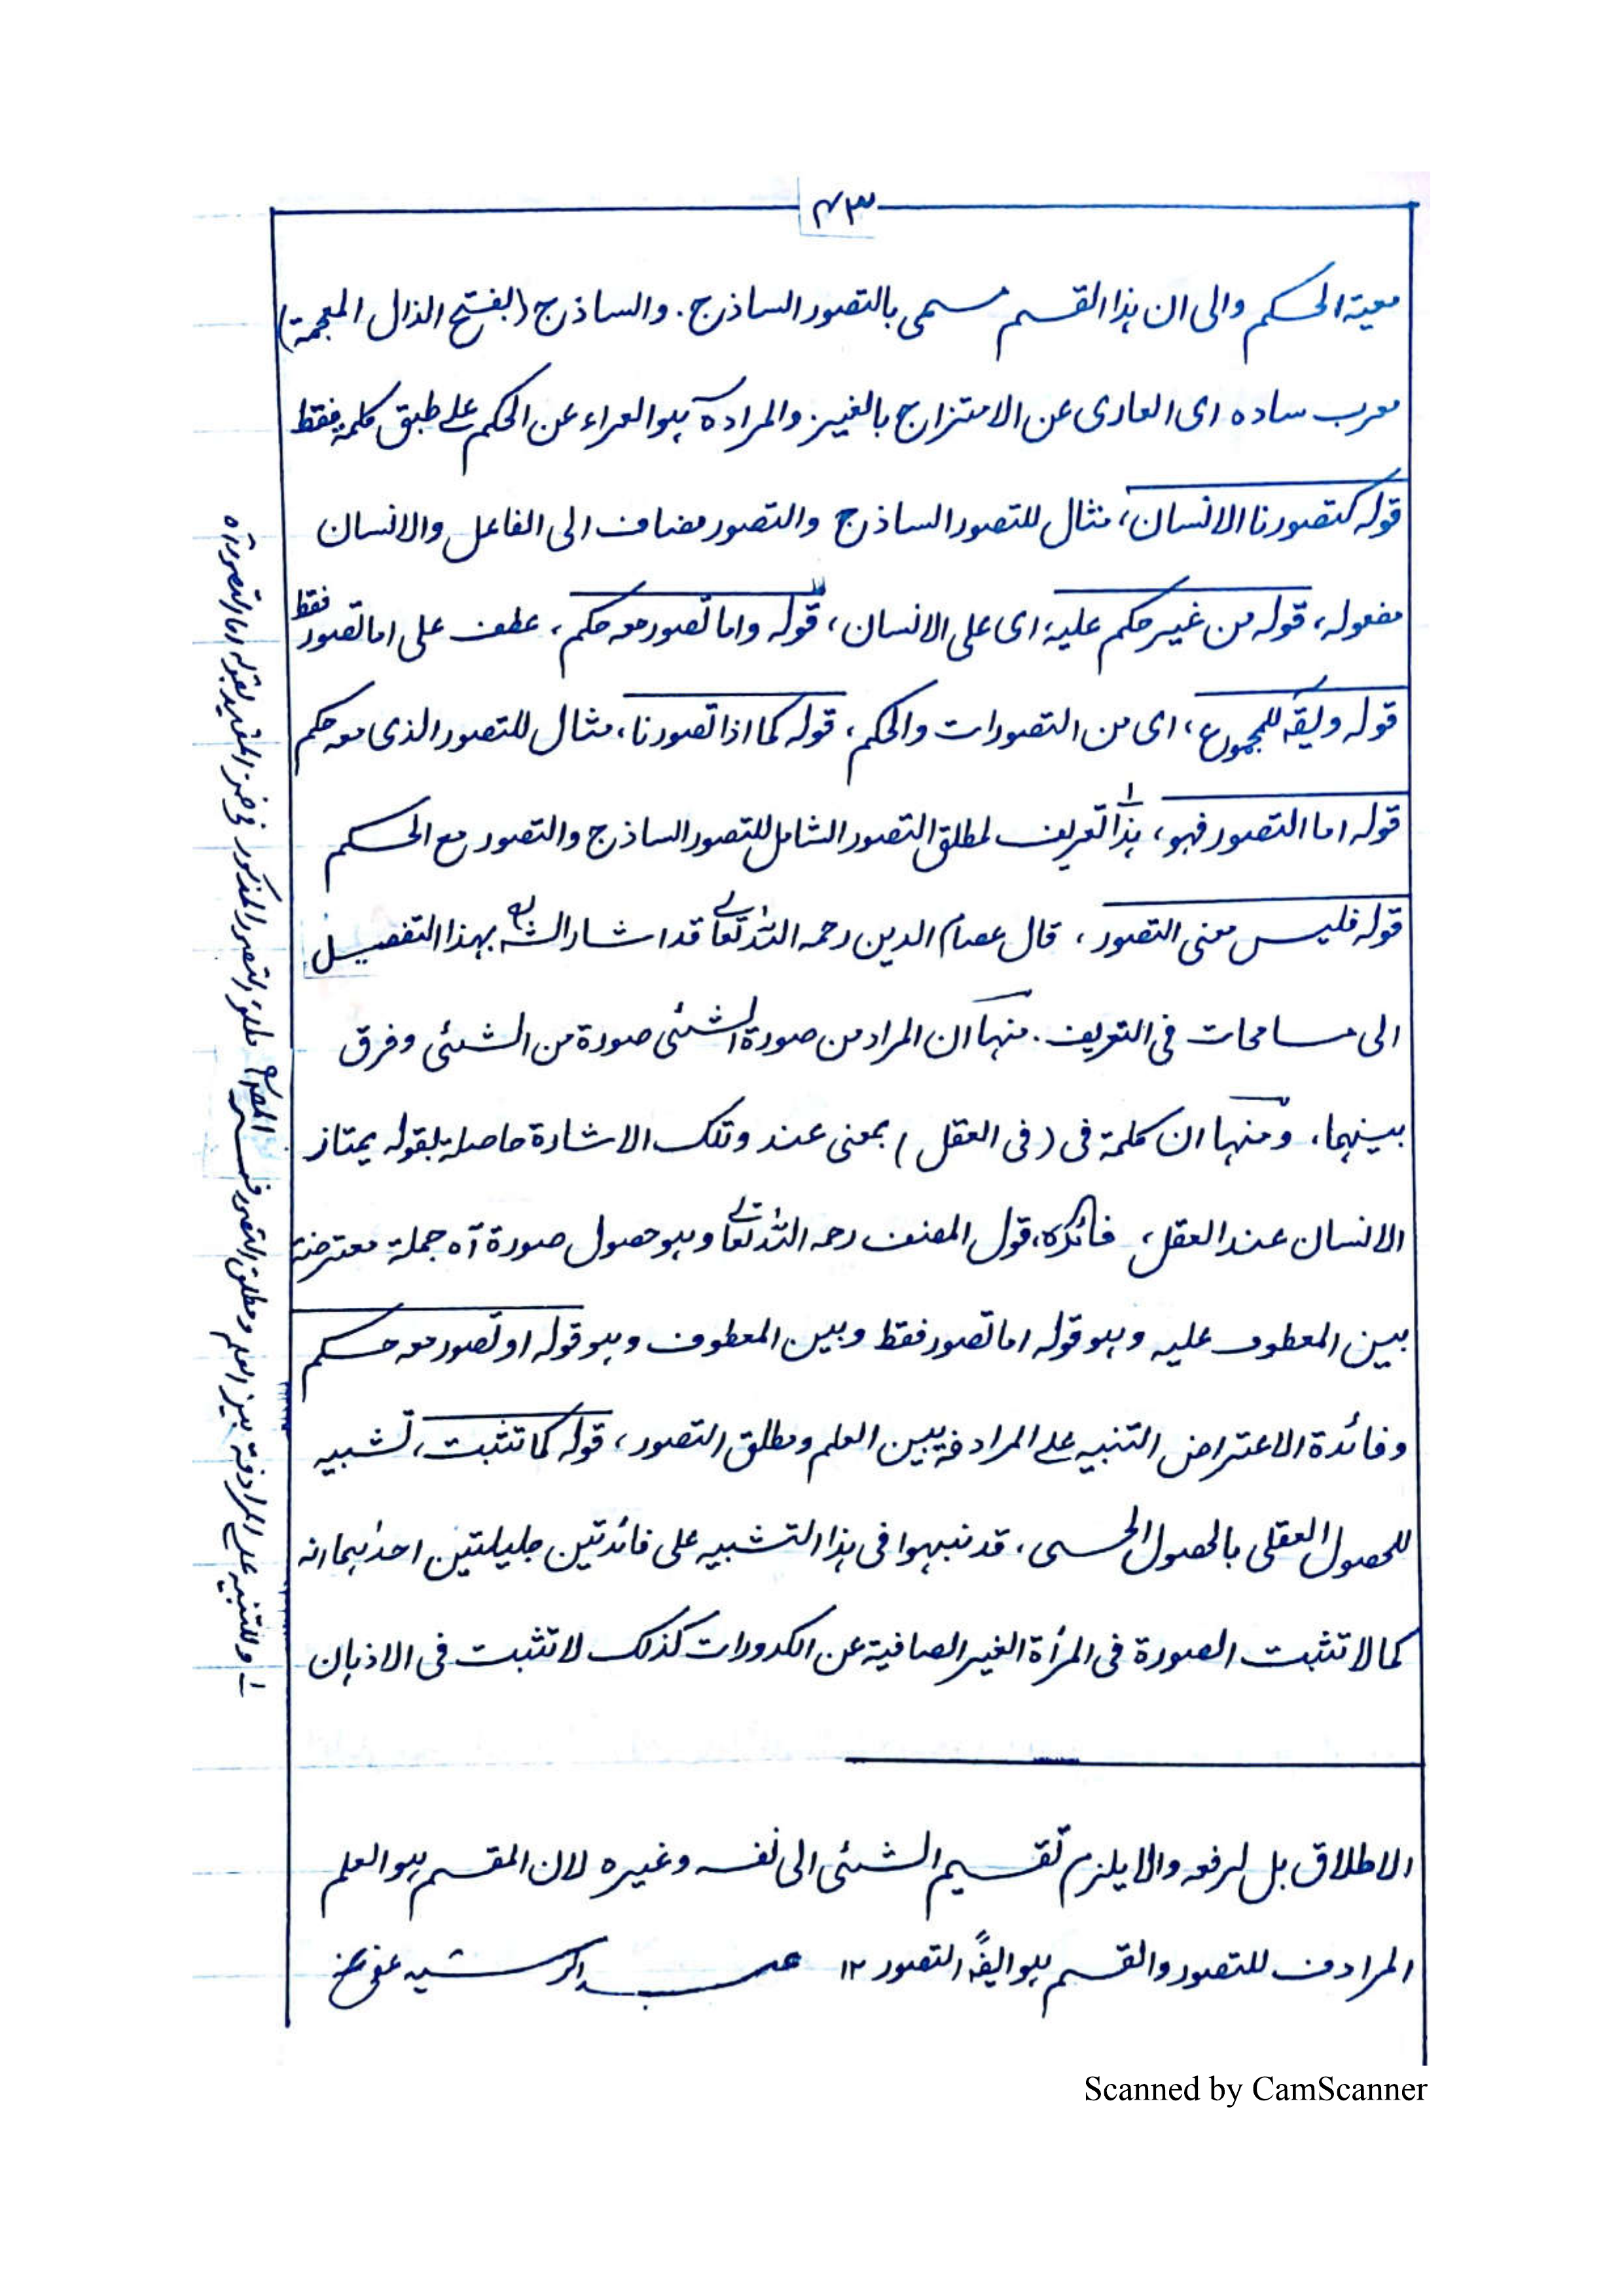 ٤٣
معية الحكم والى ان هذا القسم مسمى بالتصور الساذج. والساذج (بفتح الذال المعجمة)
معرب ساده اى العارى عن الامتزاج بالغير. والمراد ه هو العراء عن الحكم على طبق كلمة فقط
قوله كتصورنا الانسان، مثال للتصور الساذج والتصور مضاف الى الفاعل والانسان
مفعوله، قوله من غير حكم عليه، اى على الانسان، قوله واما تصور معه حكم، عطف على اما تصور فقط
قوله ويقه للمجموع، اى من التصورات والحكم، قوله كما اذا تصورنا، مثال للتصور الذى معه حكم
قوله اما التصور فهو، هذا ١ تعريف لمطلق التصور الشامل للتصور الساذج والتصور مع الحكم
قوله فليس معنى التصور، قال عصام الدين رحمه الله تعالے قد اشار الشه بهذا التفصيل
الى مسامحات فى التعريف. منها ان المراد من صورة الشئى صورة من الشئى وفرق
بينهما، ومنها ان كلمة فى (فى العقل) بمعنى عند وتلك الاشارة حاصلة بقوله يمتاز
الانسان عند العقل، فائده، قول المصنف رحمه الله تعالے وهو حصول صورة آه جملة معترضة
بين المعطوف عليه وهو قوله اما تصور فقط وبين المعطوف وهو قوله او تصور معه حكم
وفائدة الاعتراض التنبيه على المرادفة بين العلم ومطلق التصور، قوله كما تثبت، تشبيه
للحصول العقلى بالحصول الحسى، قد نبهوا فى هذا التشبيه على فائدتين جليلتين احدهما انه
كما لا تثبت الصورة فى المرأة الغير الصافية عن الكدورات كذلك لا تثبت فى الاذهان
الاطلاق بل لرفعه والا يلزم تقسيم الشئى الى نفسه وغيره لان المقسم هو العلم
المرادف للتصور والقسم هو ايضًا التصور ١٢ عبد الرشيد عفى عنه
١ وللتنبيه على المرادفة بين العلم ومطلق التصور فسر المصـ مطلق التصور المذكور فى ضمن المقيد بقوله اما التصور آه